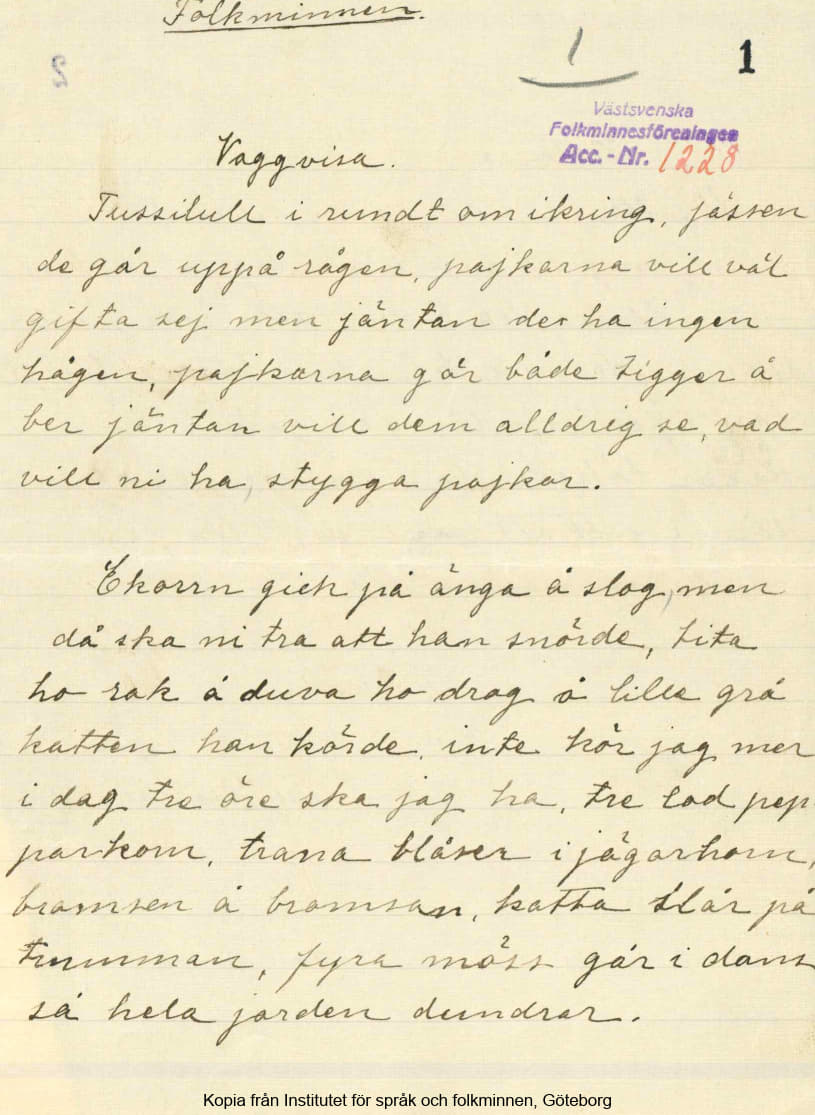 Folkminnen.
1
1
2
Västsvenska
Folkminnesföreningen
Acc.-Nr. 1228
Vaggvisa.
Tussilull i rundt omikring, jässen
de går uppå rågen, pajkarna vill väl
gifta sej men jäntan der ha ingen
hågen, pajkarna går både tigger å
ber jäntan vill dem alldrig se, vad
vill ni ha, stygga pajkar.
Ekorrn gick på änga å slog, men
då ska ni tra att han snörde, tita
ho rak å duva ho drog å lilla grå
katten han körde, inte kör jag mer
i dag tre öre ska jag ha, tre lod pep
parkorn, trana blåser i jägarhorn,
bromsen å bromsan, katta slår på
trumman, fyra möss går i dans
så hela jorden dundrar.
Kopia från Institutet för språk och folkminnen, Göteborg